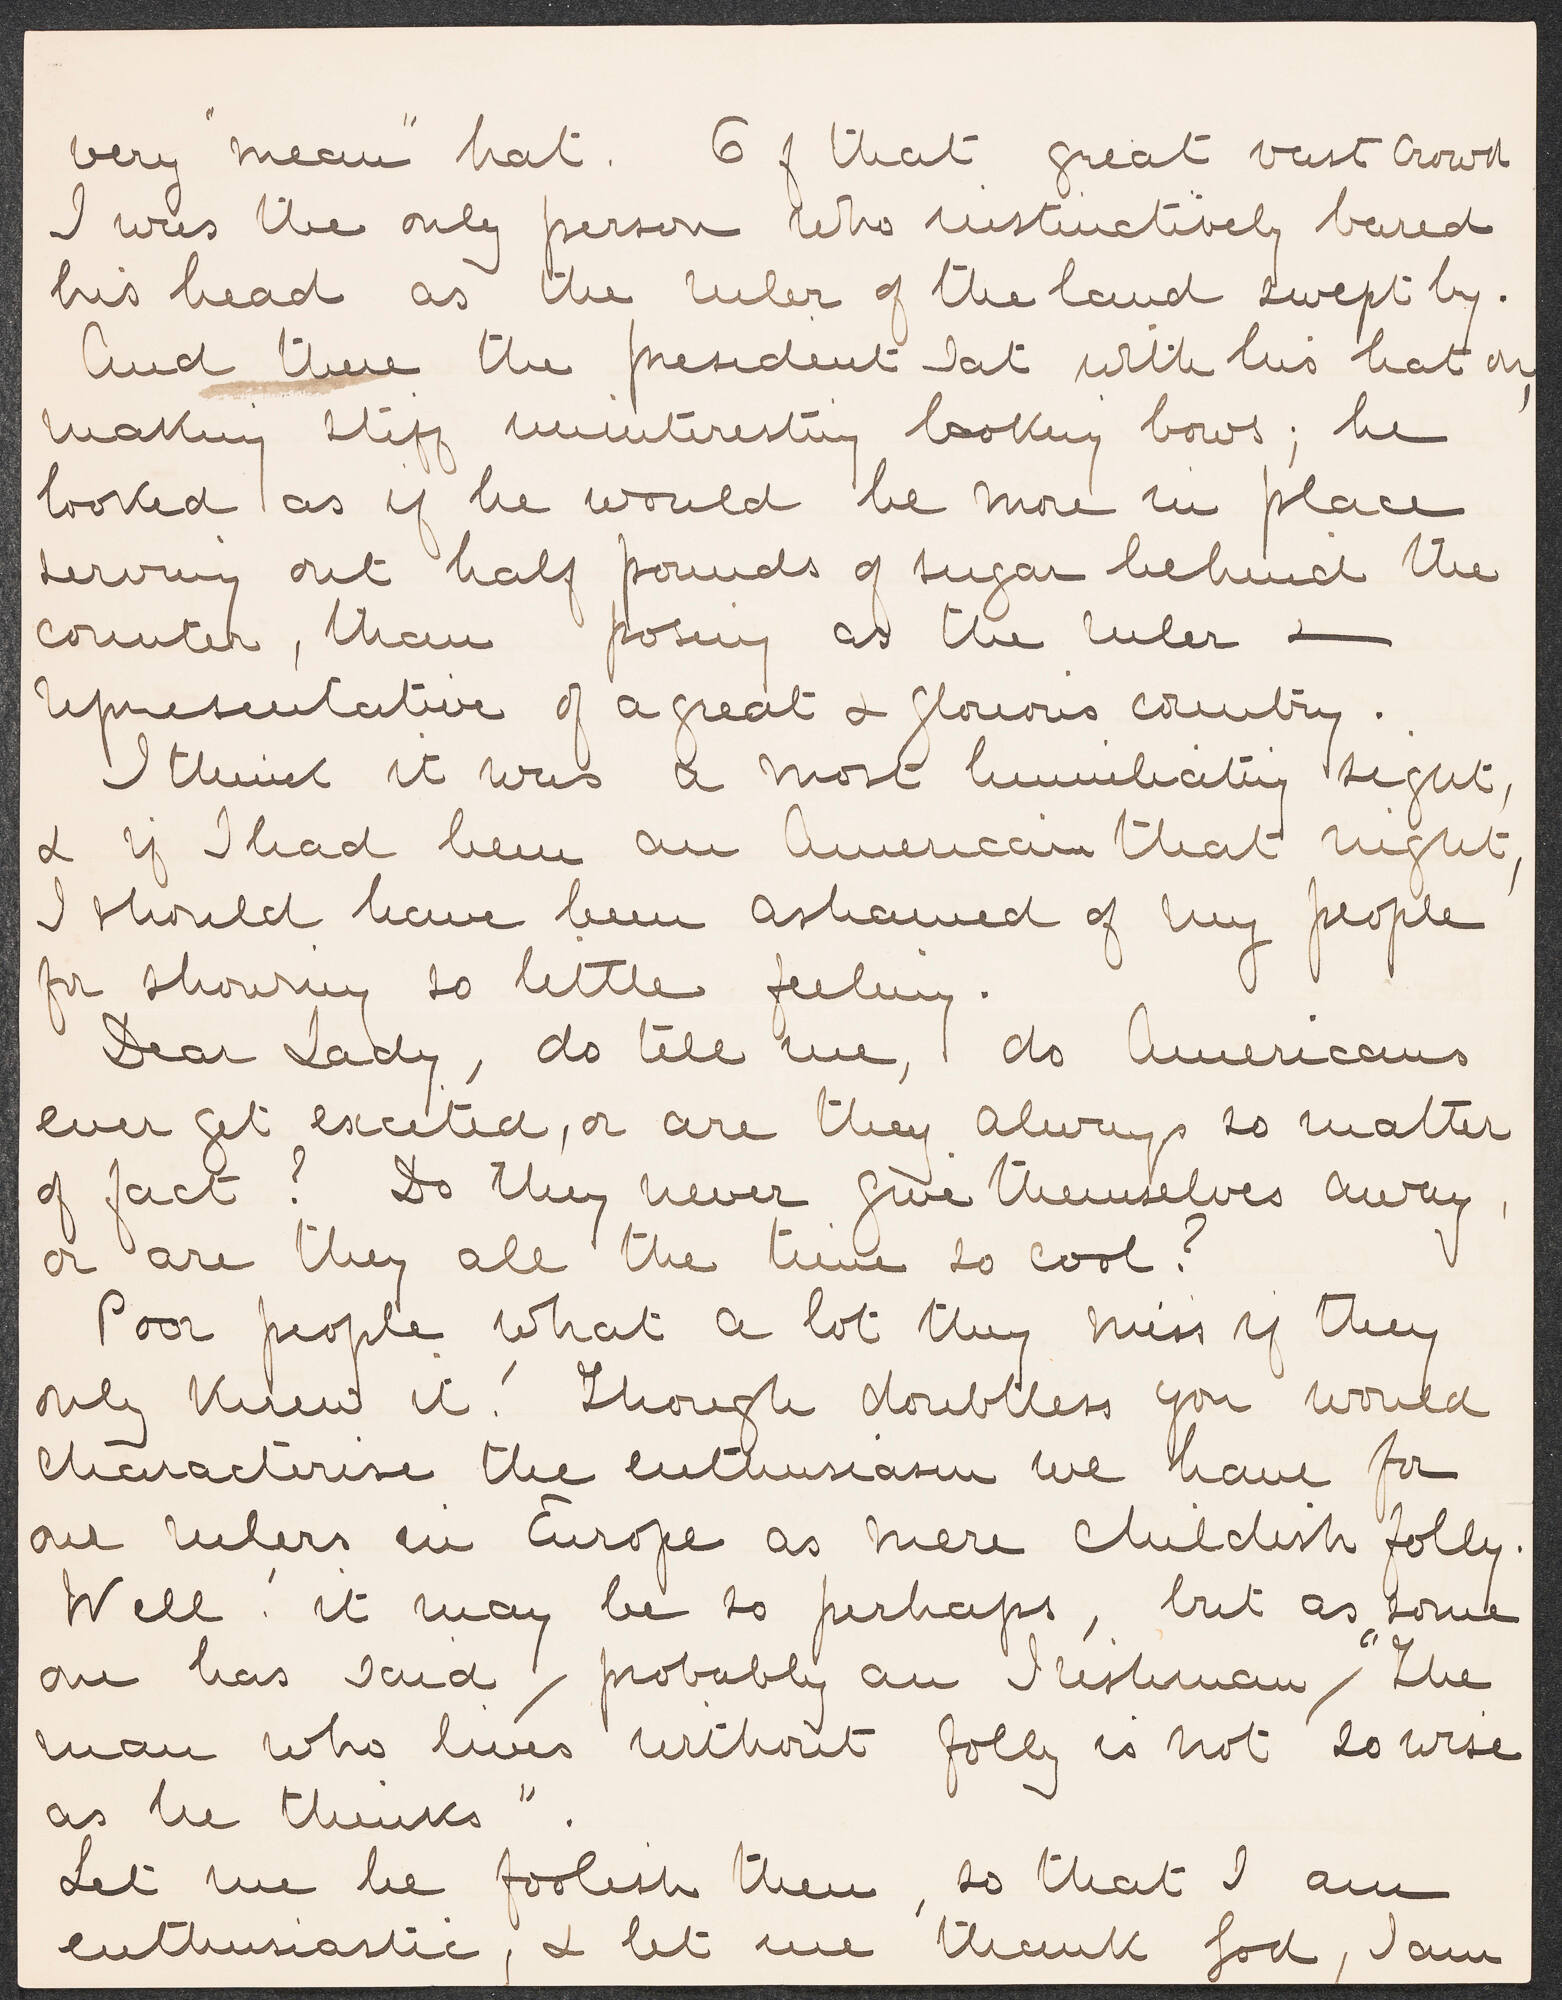 very "mean" hat. Of that great vast crowd
I was the only person who instinctively bared
his head as the ruler of the land swept by.
And there the president sat with his hat on,
making stiff uninteresting looking bows; he
looked as if he would be more in place
serving out half pounds of sugar behind the
counter, than posing as the ruler &
representative of a great & glorious country.
I think it was a most humiliating sight,
& if I had been an American that night,
I should have been ashamed of my people
for showing so little feeling.
Dear Lady, do tell me, do Americans
ever get excited, or are they always so matter
of fact? Do they never give themselves away,
or are they all the time so cool?
Poor people, what a lot they miss if they
only knew it! Though doubtless you would
characterise the enthusiasm we have for
our rulers in Europe as mere childish folly.
Well! it may be so perhaps, but as some
one has said / probably an Irishman / "The
man who lives without folly is not so wise
as he thinks".
Let me be foolish then, so that I am
enthusiastic, & let me thank God, I am